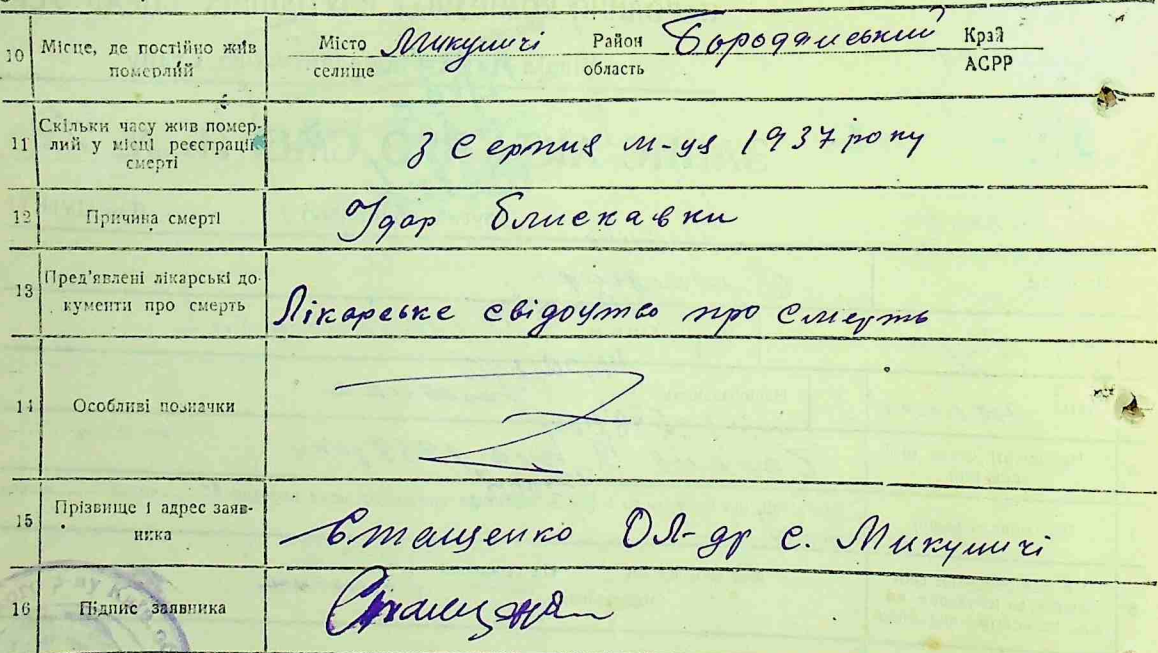 10 Місце, де постійно жив Місто Микуличі Район Бородянський Край
померлий селище область АСРР
11 Скільки часу жив помер-
лий у місці реєстрації
смерті
З Серпня м-ця 1937 року
12 Причина смерті Удар блискавки
13 Пред'явлені лікарські до-
кументи про смерть Лікарське свідоцтво про смерть
14 Особливі позначки
15 Прізвище і адрес заяв-
ника Стащенко Ол-др с. Микуличі
16 Підпис заявника